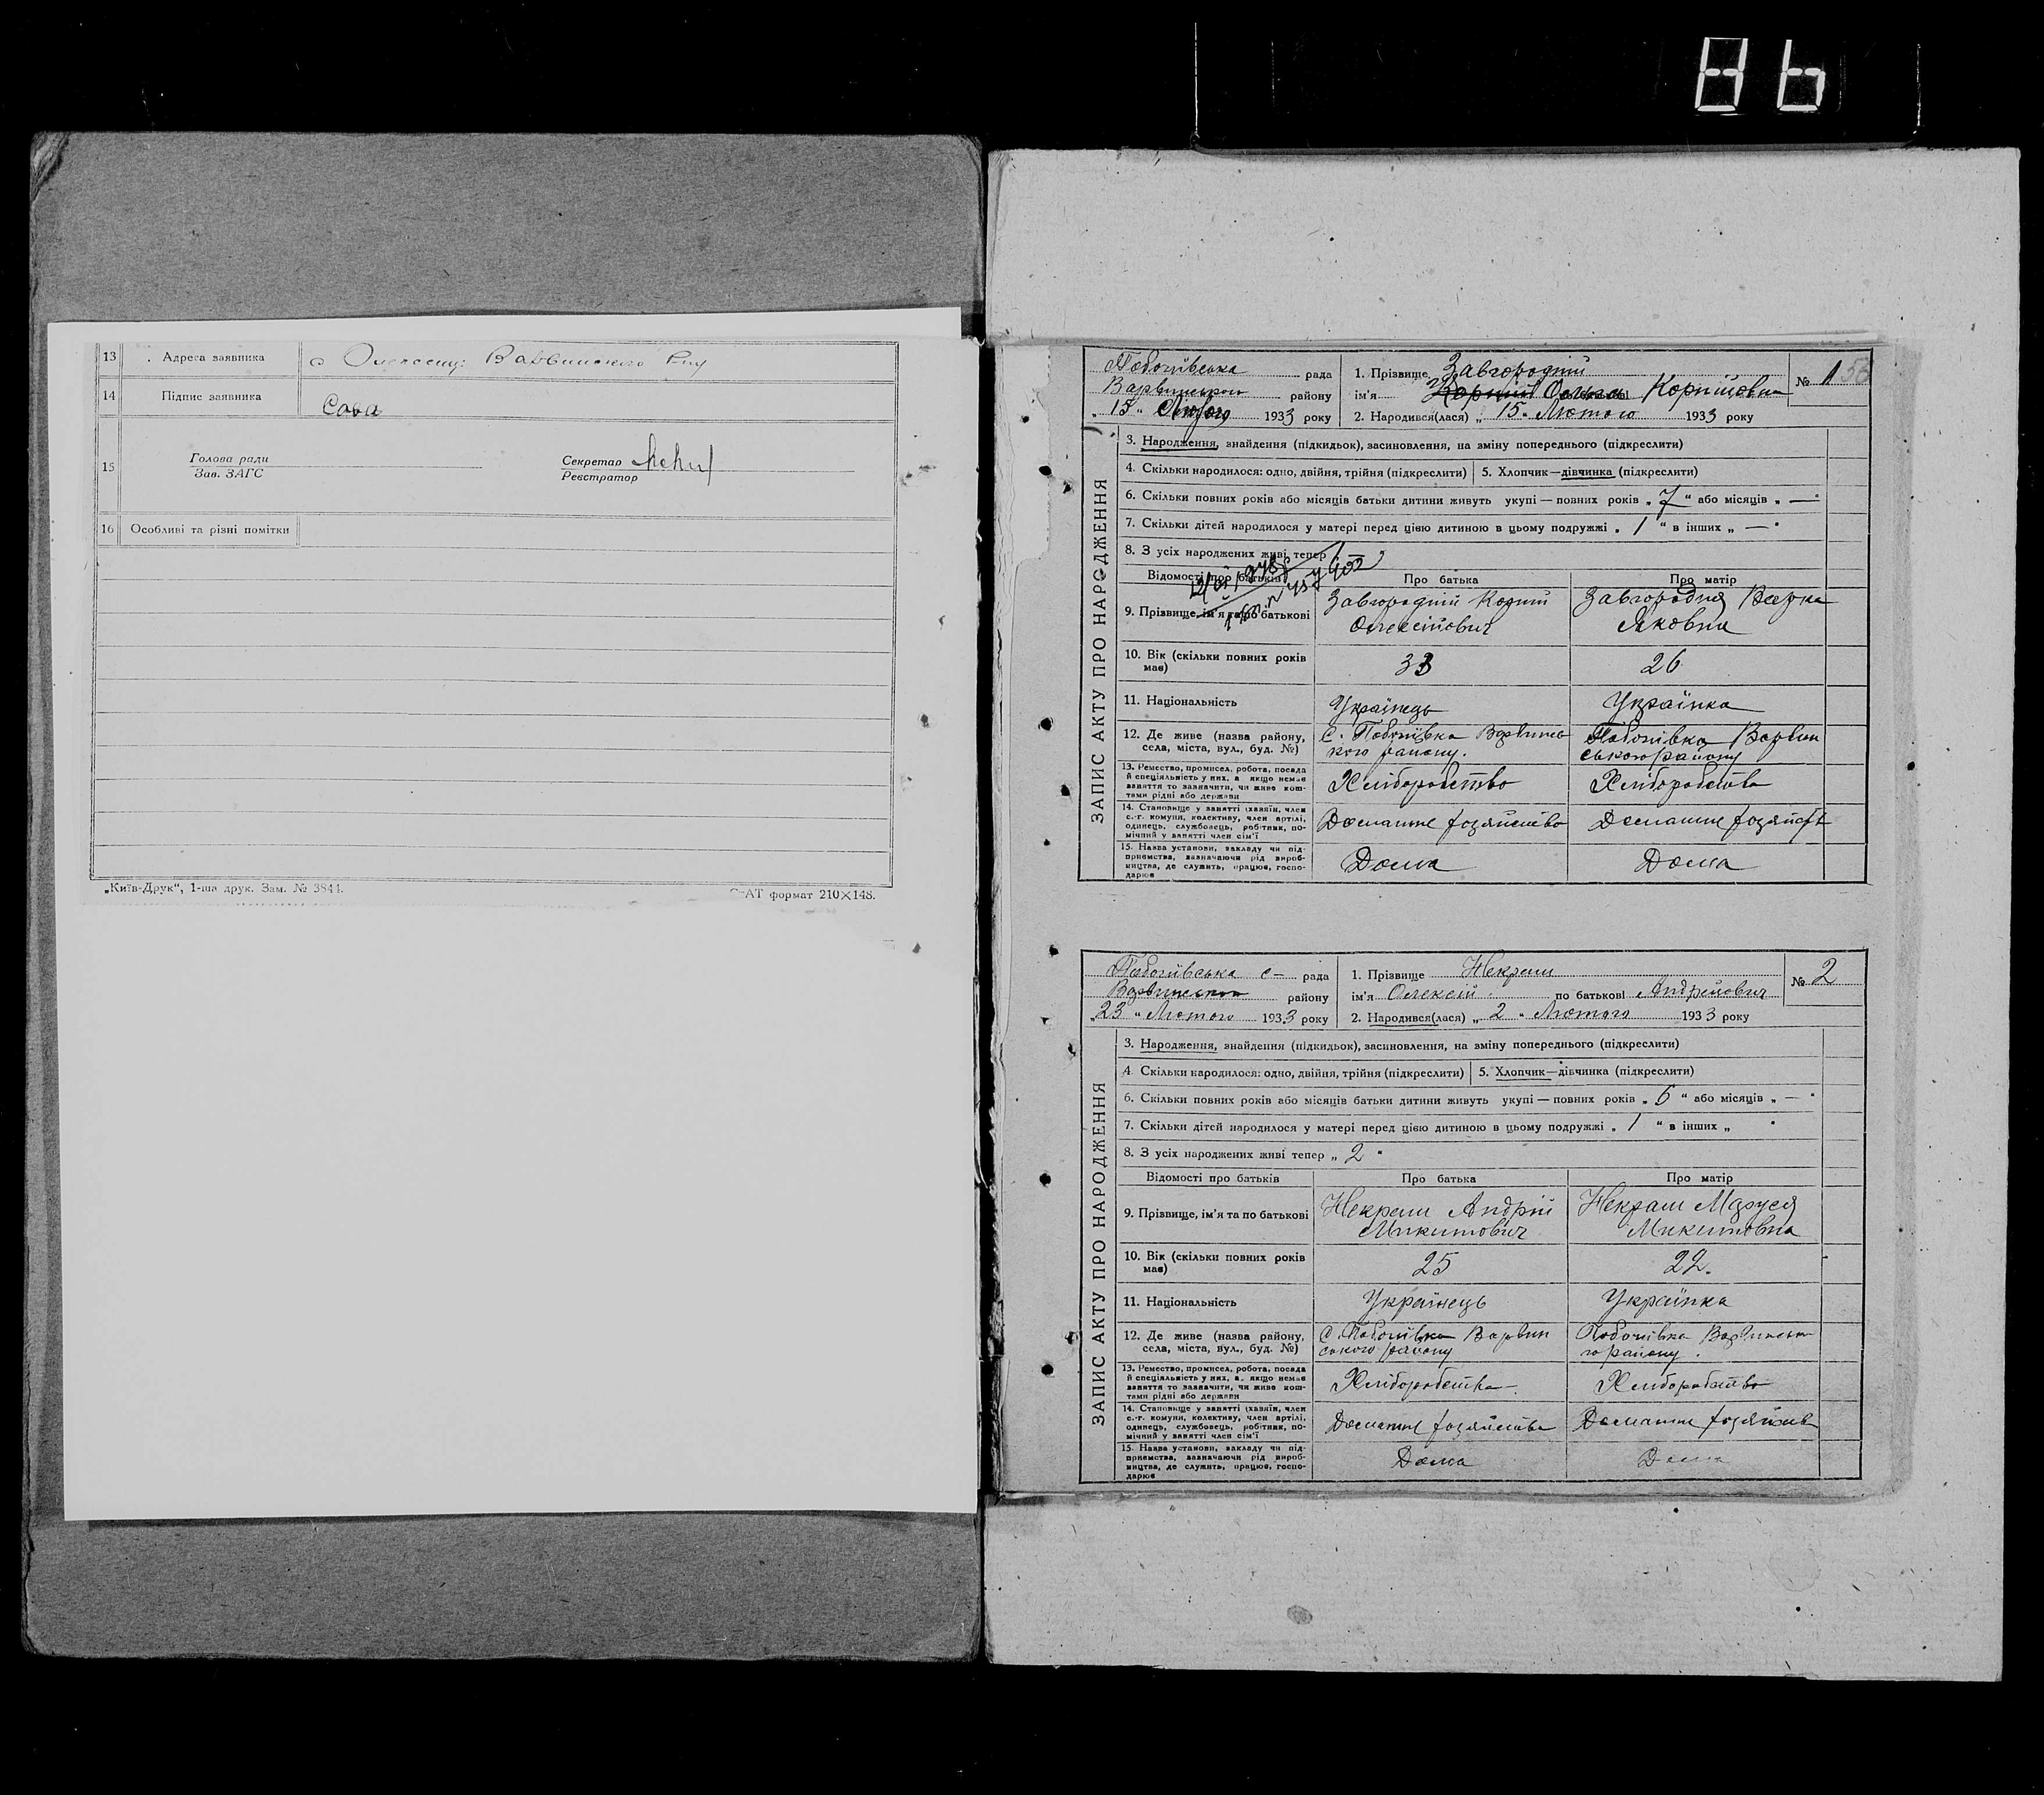 86
13 . Адреса заявника с Варвинського р-ну
14 Підпис заявника Сава
15 Голова ради
Зав. ЗАГС
Секретар
Реєстратор
16 Особливі та різні помітки
„Київ-Друк“, 1-ша друк. Зам. № 3844.
АТ формат 210×148.
ЗАПИС АКТУ ПРО НАРОДЖЕННЯ
рада
району
„15“ Лютого 1933 року
1. Прізвище Завгородній
ім'я Ольга Корніїовна
2. Народився(лася) „15“ Лютого 1933 року
№ 1
3. Народження, знайдення (підкидьок), засиновлення, на зміну попереднього (підкреслити)
4. Скільки народилося: одно, двійня, трійня (підкреслити) 5. Хлопчик—дівчинка (підкреслити)
6. Скільки повних років або місяців батьки дитини живуть укупі — повних років „7“ або місяців „—“
7. Скільки дітей народилося у матері перед цією дитиною в цьому подружжі „1“ в інших „—“
8. З усіх народжених живі тепер
Відомості про батьків Про батька Про матір
9. Прізвище, ім'я та по батькові Завгородній Корній Олексійович Завгородня Варка Яковна
10. Вік (скільки повних років має) 33 26
11. Національність Українець Українка
12. Де живе (назва району, села, міста, вул., буд. №)
13. Ремество, промисел, робота, посада й спеціяльність у них, а якщо немає заняття то зазначити, чи живе коштами рідні або держави Хліборобство Хліборобства
14. Становище у занятті (хазяїн, член с.-г. комуни, колективу, член артілі, одинець, службовець, робітник, помічний у занятті член сім'ї Домашнє хозяйство Домашнє хозяйств
15. Назва установи, закладу чи підприємства, зазначаючи рід виробництва, де служить, працює, господарює Дома Дома
ЗАПИС АКТУ ПРО НАРОДЖЕННЯ
с— рада
району
„23“ Лютого 1933 року
1. Прізвище Некраш
ім'я Олексій по батькові Андрійович
2. Народився(лася) „2“ Лютого 1933 року
№ 2
3. Народження, знайдення (підкидьок), засиновлення, на зміну попереднього (підкреслити)
4. Скільки народилося: одно, двійня, трійня (підкреслити) 5. Хлопчик—дівчинка (підкреслити)
6. Скільки повних років або місяців батьки дитини живуть укупі — повних років „6“ або місяців „—“
7. Скільки дітей народилося у матері перед цією дитиною в цьому подружжі „1“ в інших „ “
8. З усіх народжених живі тепер „2“
Відомості про батьків Про батька Про матір
9. Прізвище, ім'я та по батькові Некраш Андрій Микитович Некраш Маруся Микитовна
10. Вік (скільки повних років має) 25 22.
11. Національність Українець Українка
12. Де живе (назва району, села, міста, вул., буд. №)
13. Ремество, промисел, робота, посада й спеціяльність у них, а якщо немає заняття то зазначити, чи живе коштами рідні або держави Хліборобства Хліборобство
14. Становище у занятті (хазяїн, член с.-г. комуни, колективу, член артілі, одинець, службовець, робітник, помічний у занятті член сім'ї Домашнє хозяйства Домашнє хозяйств
15. Назва установи, закладу чи підприємства, зазначаючи рід виробництва, де служить, працює, господарює Дома Дома